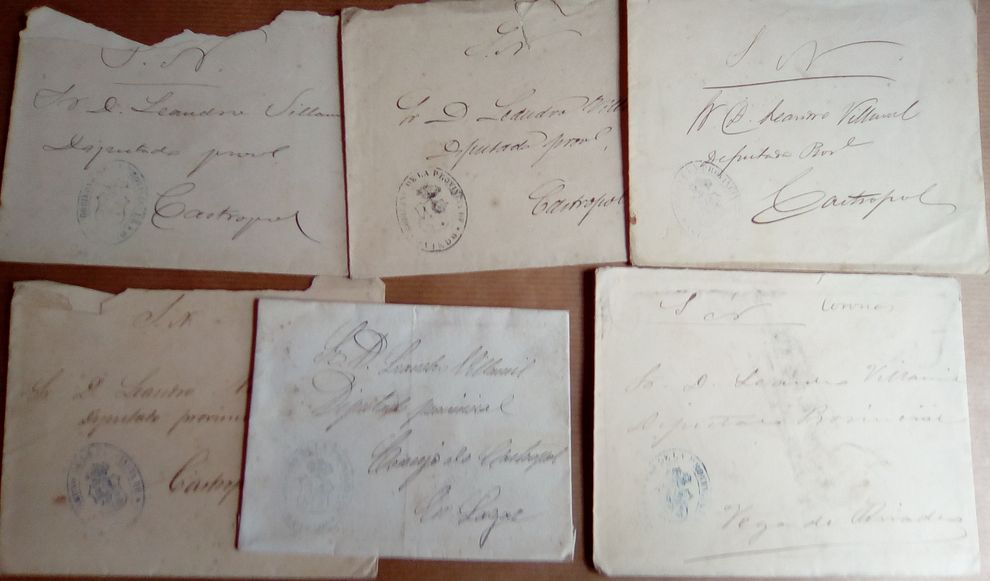 S. N.
Sr. D. Leandro Villami
Diputado provl.
Castropol
S. N.
Sr. D. Leandro Vill
Diputado provl.
Castropol
DE LA PROVINCIA
OVIEDO
S. N.
Sr. D. Leandro Villamil
Diputado Provl
Castropol
S. N.
Sr. D. Leandro V
Diputado provin
Castrop
Sr. D. Leandro Villamil
Diputado provincial
Concejo de Castropol
S N
Sr. D. Leandro Villamil
Diputado Provincial
Vega de Rivadeo